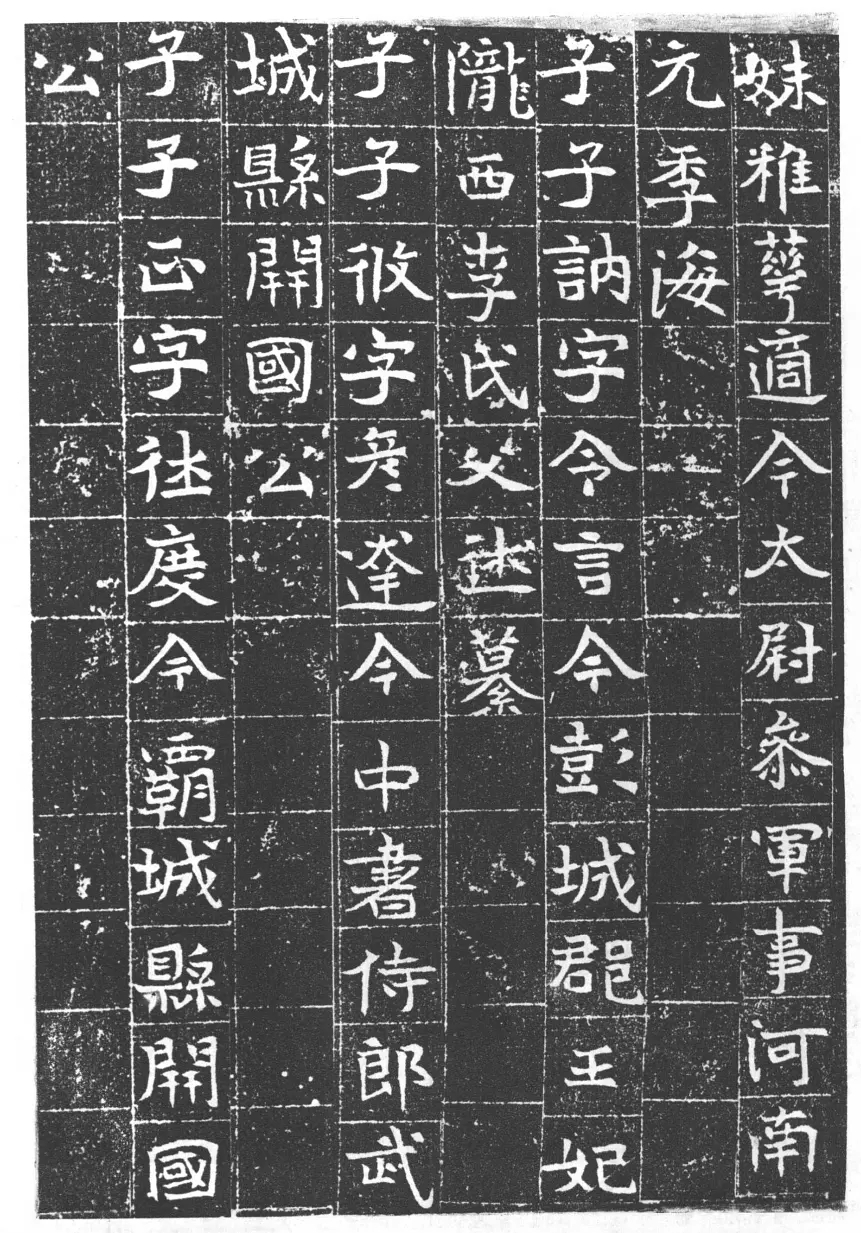 妹稚華適今太尉參軍事河南
元季海
子子訥字令言今彭城郡王妃
隴西李氏父休纂
子子攸字彥達今中書侍郎武
城縣開國公
子子正字休度今霸城縣開國
公